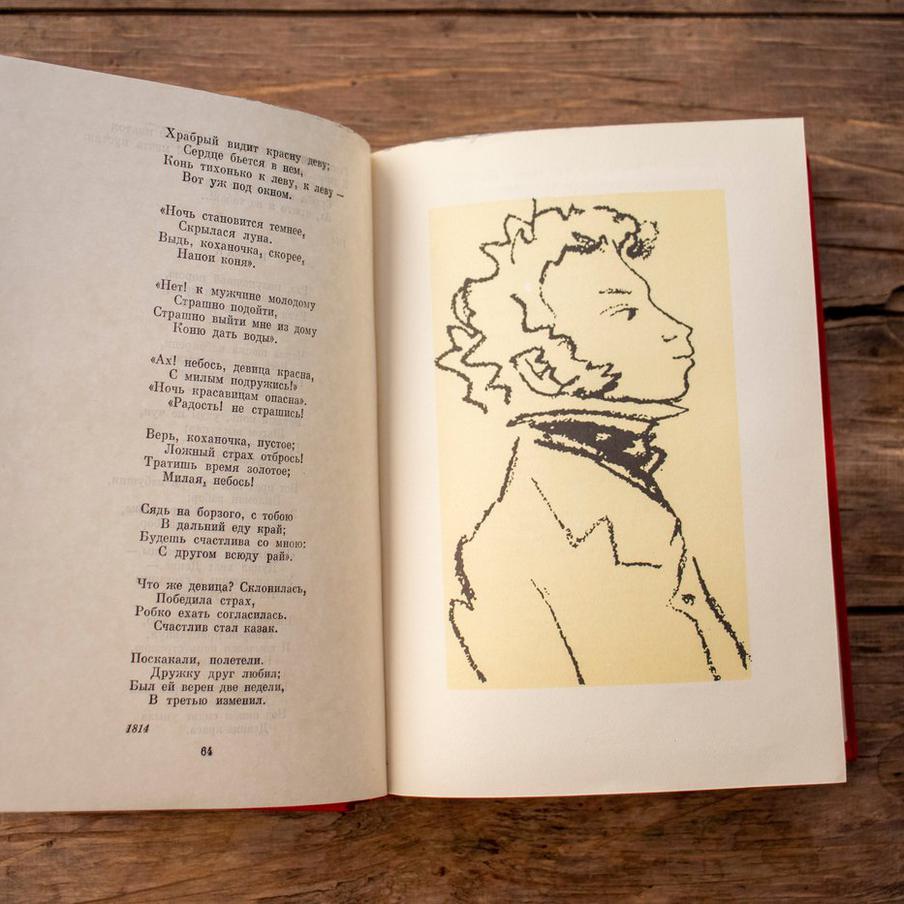 Храбрый видит красну деву;
Сердце бьется в нем,
Конь тихонько к леву, к леву —
Вот уж под окном.
«Ночь становится темнее,
Скрылася луна.
Выдь, коханочка, скорее,
Напои коня».
«Нет! к мужчине молодому
Страшно подойти,
Страшно выйти мне из дому
Коню дать воды».
«Ах! небось, девица красна,
С милым подружись!»
«Ночь красавицам опасна».
«Радость! не страшись!
Верь, коханочка, пустое;
Ложный страх отбрось!
Тратишь время золотое;
Милая, небось!
Сядь на борзого, с тобою
В дальний еду край;
Будешь счастлива со мною:
С другом всюду рай».
Что же девица? Склонилась,
Победила страх,
Робко ехать согласилась.
Счастлив стал казак.
Поскакали, полетели.
Дружку друг любил;
Был ей верен две недели,
В третью изменил.
1814
64